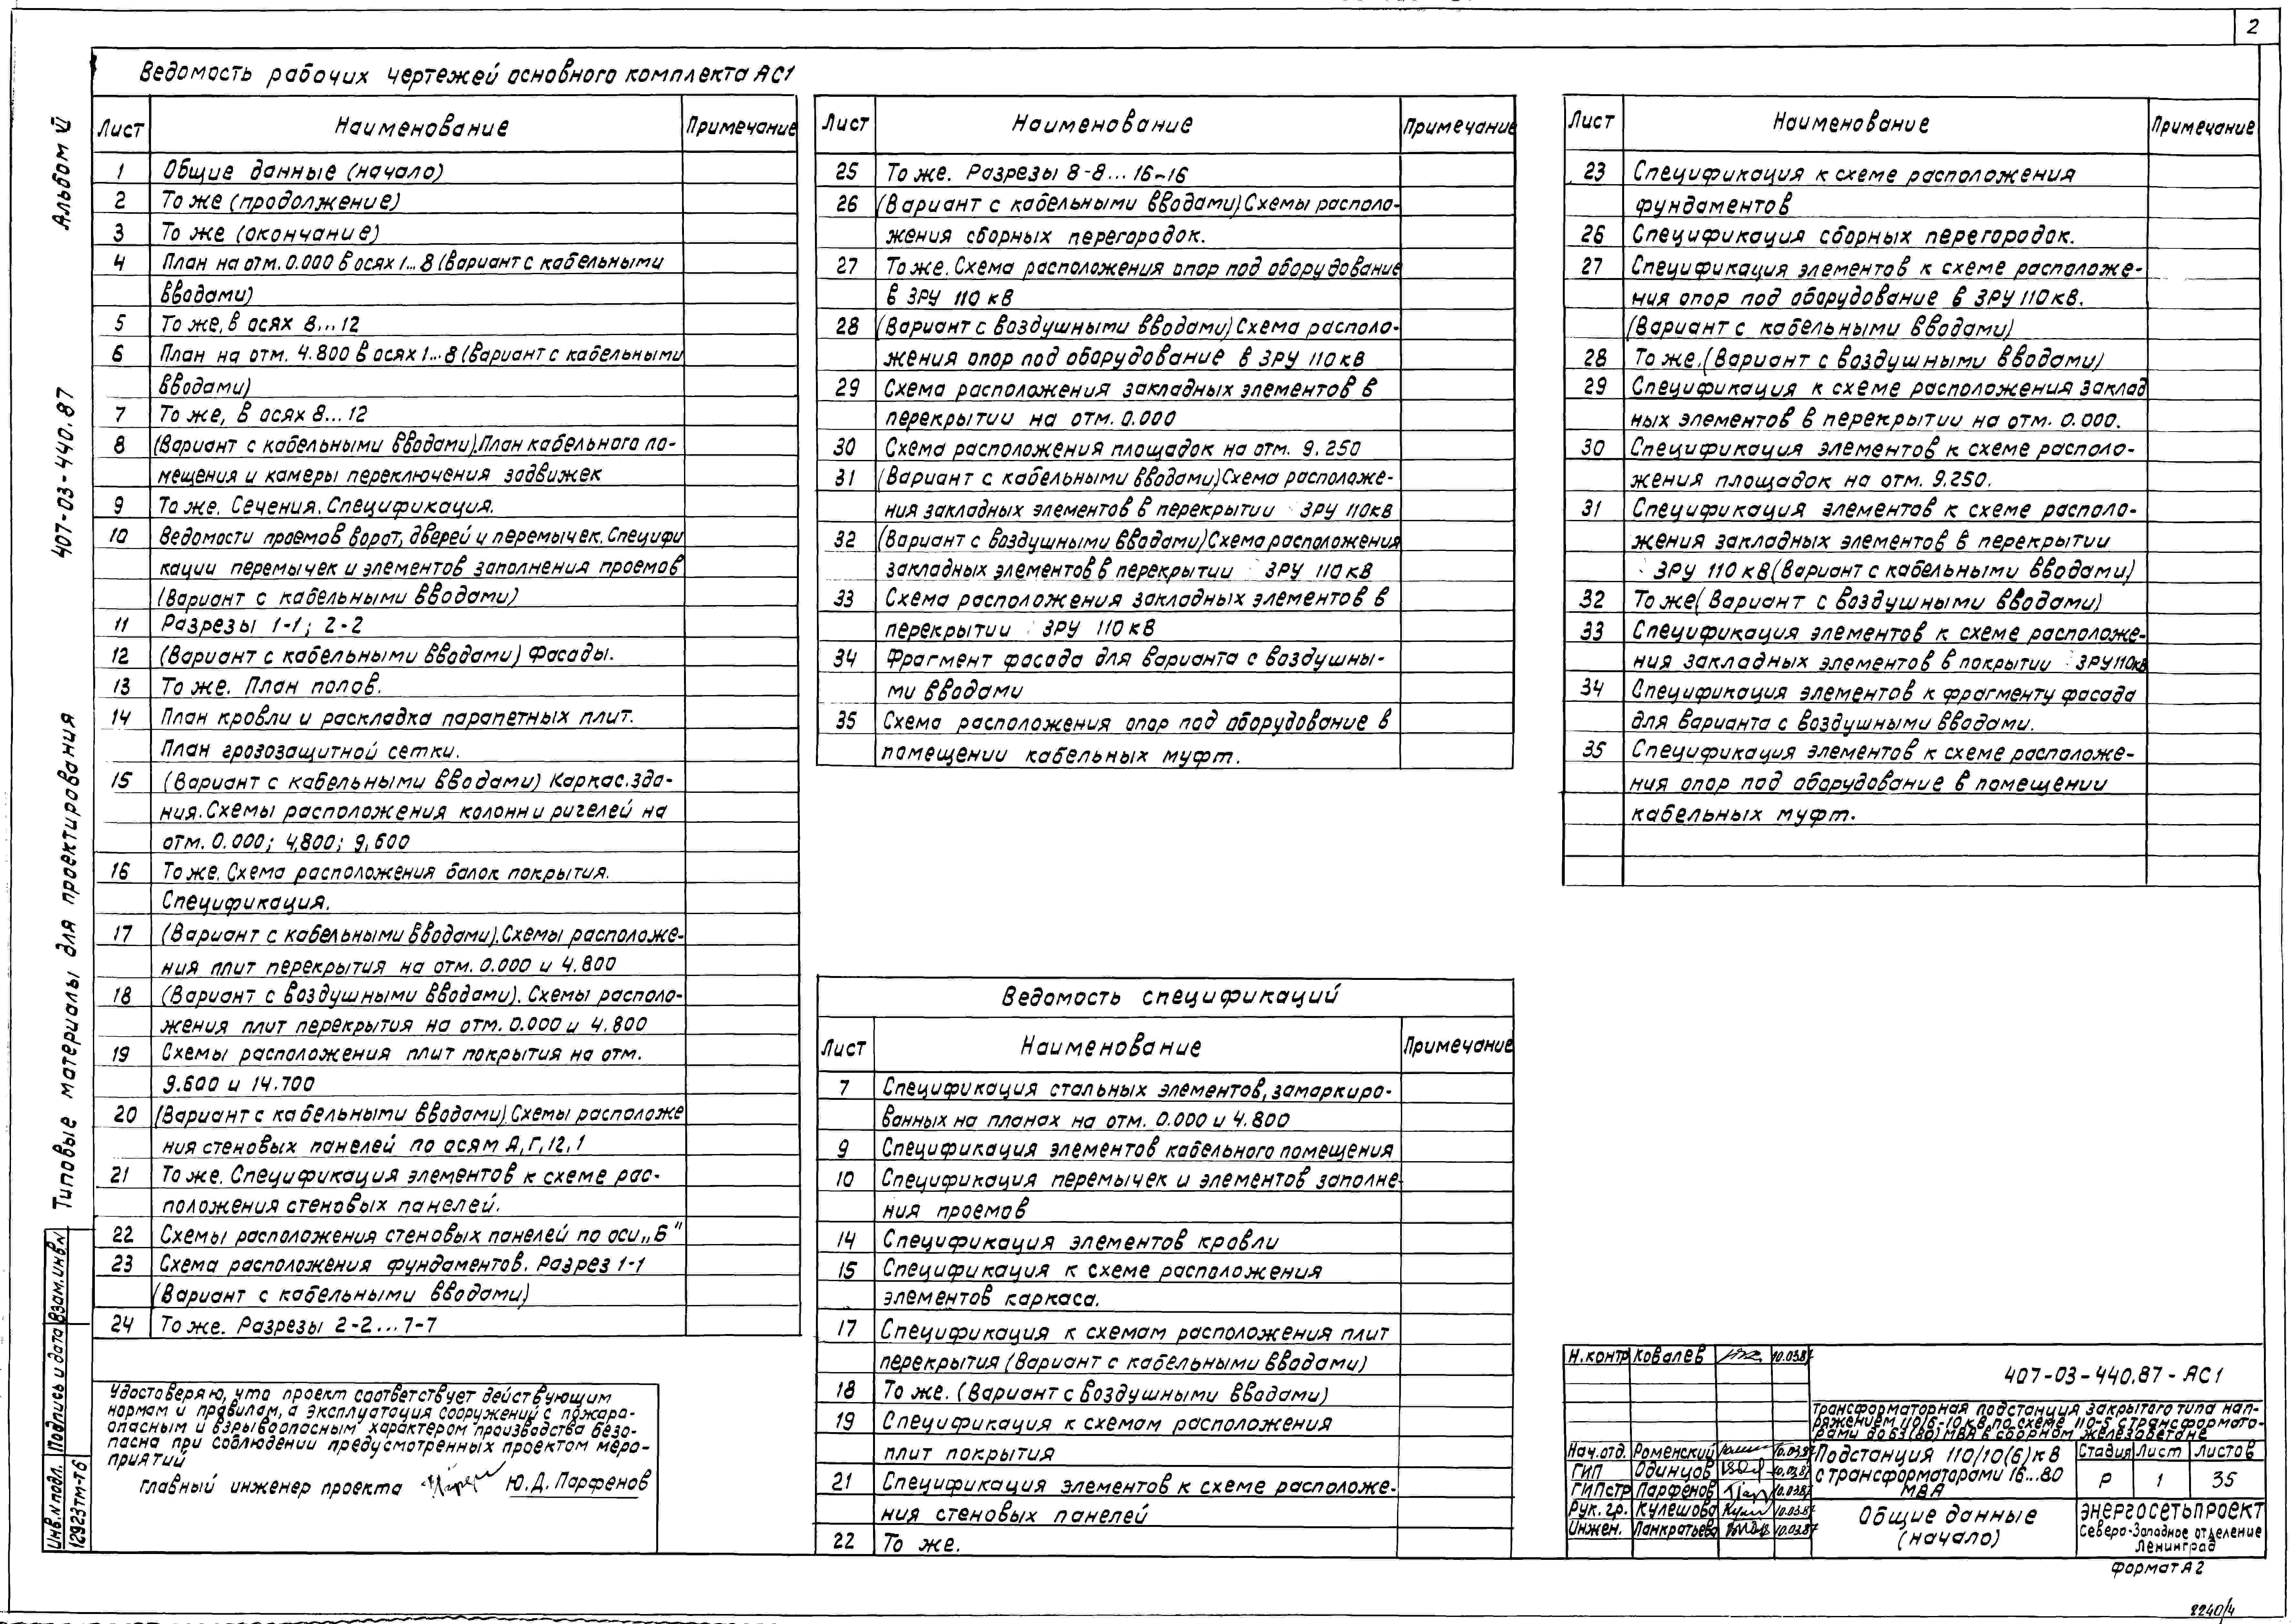 2
Альбом VI
407-03-440.87
Типовые материалы для проектирования
Ведомость рабочих чертежей основного комплекта АС1
Лист Наименование Примечание
1 Общие данные (начало)
2 То же (продолжение)
3 То же (окончание)
4 План на отм. 0.000 в осях 1...8 (вариант с кабельными
вводами)
5 То же, в осях 8...12
6 План на отм. 4.800 в осях 1...8 (вариант с кабельными
вводами)
7 То же, в осях 8...12
8 (Вариант с кабельными вводами). План кабельного по-
мещения и камеры переключения задвижек
9 То же. Сечения. Спецификация.
10 Ведомости проемов ворот, дверей и перемычек. Специфи
кации перемычек и элементов заполнения проемов
(Вариант с кабельными вводами)
11 Разрезы 1-1; 2-2
12 (Вариант с кабельными вводами) Фасады.
13 То же. План полов.
14 План кровли и раскладка парапетных плит.
План грозозащитной сетки.
15 (Вариант с кабельными вводами) Каркас. зда-
ния. Схемы расположения колонн и ригелей на
отм. 0.000; 4,800; 9,600
16 То же. Схема расположения балок покрытия.
Спецификация.
17 (Вариант с кабельными вводами). Схемы расположе-
ния плит перекрытия на отм. 0.000 и 4.800
18 (Вариант с воздушными вводами). Схемы располо-
жения плит перекрытия на отм. 0.000 и 4.800
19 Схемы расположения плит покрытия на отм.
9.600 и 14.700
20 (Вариант с кабельными вводами) Схемы расположе
ния стеновых панелей по осям А, Г, 12, 1
21 То же. Спецификация элементов к схеме рас-
положения стеновых панелей.
22 Схемы расположения стеновых панелей по оси „Б"
23 Схема расположения фундаментов. Разрез 1-1
(Вариант с кабельными вводами)
24 То же. Разрезы 2-2...7-7
Лист Наименование Примечание
25 То же. Разрезы 8-8...16-16
26 (Вариант с кабельными вводами) Схемы располо-
жения сборных перегородок.
27 То же. Схема расположения опор под оборудование
в ЗРУ 110 кв
28 (Вариант с воздушными вводами) Схема располо-
жения опор под оборудование в ЗРУ 110 кв
29 Схема расположения закладных элементов в
перекрытии на отм. 0.000
30 Схема расположения площадок на отм. 9.250
31 (Вариант с кабельными вводами) Схема расположе-
ния закладных элементов в перекрытии ЗРУ 110кв
32 (Вариант с воздушными вводами) Схема расположения
закладных элементов в перекрытии ЗРУ 110 кв
33 Схема расположения закладных элементов в
перекрытии ЗРУ 110 кв
34 Фрагмент фасада для варианта с воздушны-
ми вводами
35 Схема расположения опор под оборудование в
помещении кабельных муфт.
Ведомость спецификаций
Лист Наименование Примечание
7 Спецификация стальных элементов, замаркиро-
ванных на планах на отм. 0.000 и 4.800
9 Спецификация элементов кабельного помещения
10 Спецификация перемычек и элементов заполне-
ния проемов
14 Спецификация элементов кровли
15 Спецификация к схеме расположения
элементов каркаса.
17 Спецификация к схемам расположения плит
перекрытия (Вариант с кабельными вводами)
18 То же. (Вариант с воздушными вводами)
19 Спецификация к схемам расположения
плит покрытия
21 Спецификация элементов к схеме расположе-
ния стеновых панелей
22 То же.
Лист Наименование Примечание
23 Спецификация к схеме расположения
фундаментов
26 Спецификация сборных перегородок.
27 Спецификация элементов к схеме расположе-
ния опор под оборудование в ЗРУ 110 кв.
(Вариант с кабельными вводами)
28 То же. (Вариант с воздушными вводами)
29 Спецификация к схеме расположения заклад
ных элементов в перекрытии на отм. 0.000.
30 Спецификация элементов к схеме располо-
жения площадок на отм. 9.250.
31 Спецификация элементов к схеме располо-
жения закладных элементов в перекрытии
ЗРУ 110 кв (Вариант с кабельными вводами)
32 То же (Вариант с воздушными вводами)
33 Спецификация элементов к схеме расположе-
ния закладных элементов в покрытии ЗРУ 110кв
34 Спецификация элементов к фрагменту фасада
для варианта с воздушными вводами.
35 Спецификация элементов к схеме расположе-
ния опор под оборудование в помещении
кабельных муфт.
Удостоверяю, что проект соответствует действующим
нормам и правилам, а эксплуатация сооружений с пожаро-
опасным и взрывоопасным характером производства безо-
пасна при соблюдении предусмотренных проектом меро-
приятий
Главный инженер проекта Ю.Д. Парфенов
Инв. N подл. Подпись и дата Взам. инв. N
12923тм-т6
Н. контр Ковалев 10.03.87
Нач. отд. Роменский 10.03.87
ГИП Одинцов 10.03.87
ГИПстр Парфенов 10.03.87
Рук. гр. Кулешова 10.03.87
Инжен. Панкратьева 10.03.87
407-03-440.87-АС1
Трансформаторная подстанция закрытого типа нап-
ряжением 110/6-10 кв по схеме 110-5 с трансформато-
рами до 63 (80) МВА в сборном железобетоне
Подстанция 110/10(6) кв
с трансформаторами 16...80
МВА
Стадия Лист Листов
Р 1 35
Общие данные
(начало)
Энергосетьпроект
Северо-Западное отделение
Ленинград
Формат А2
2240/4